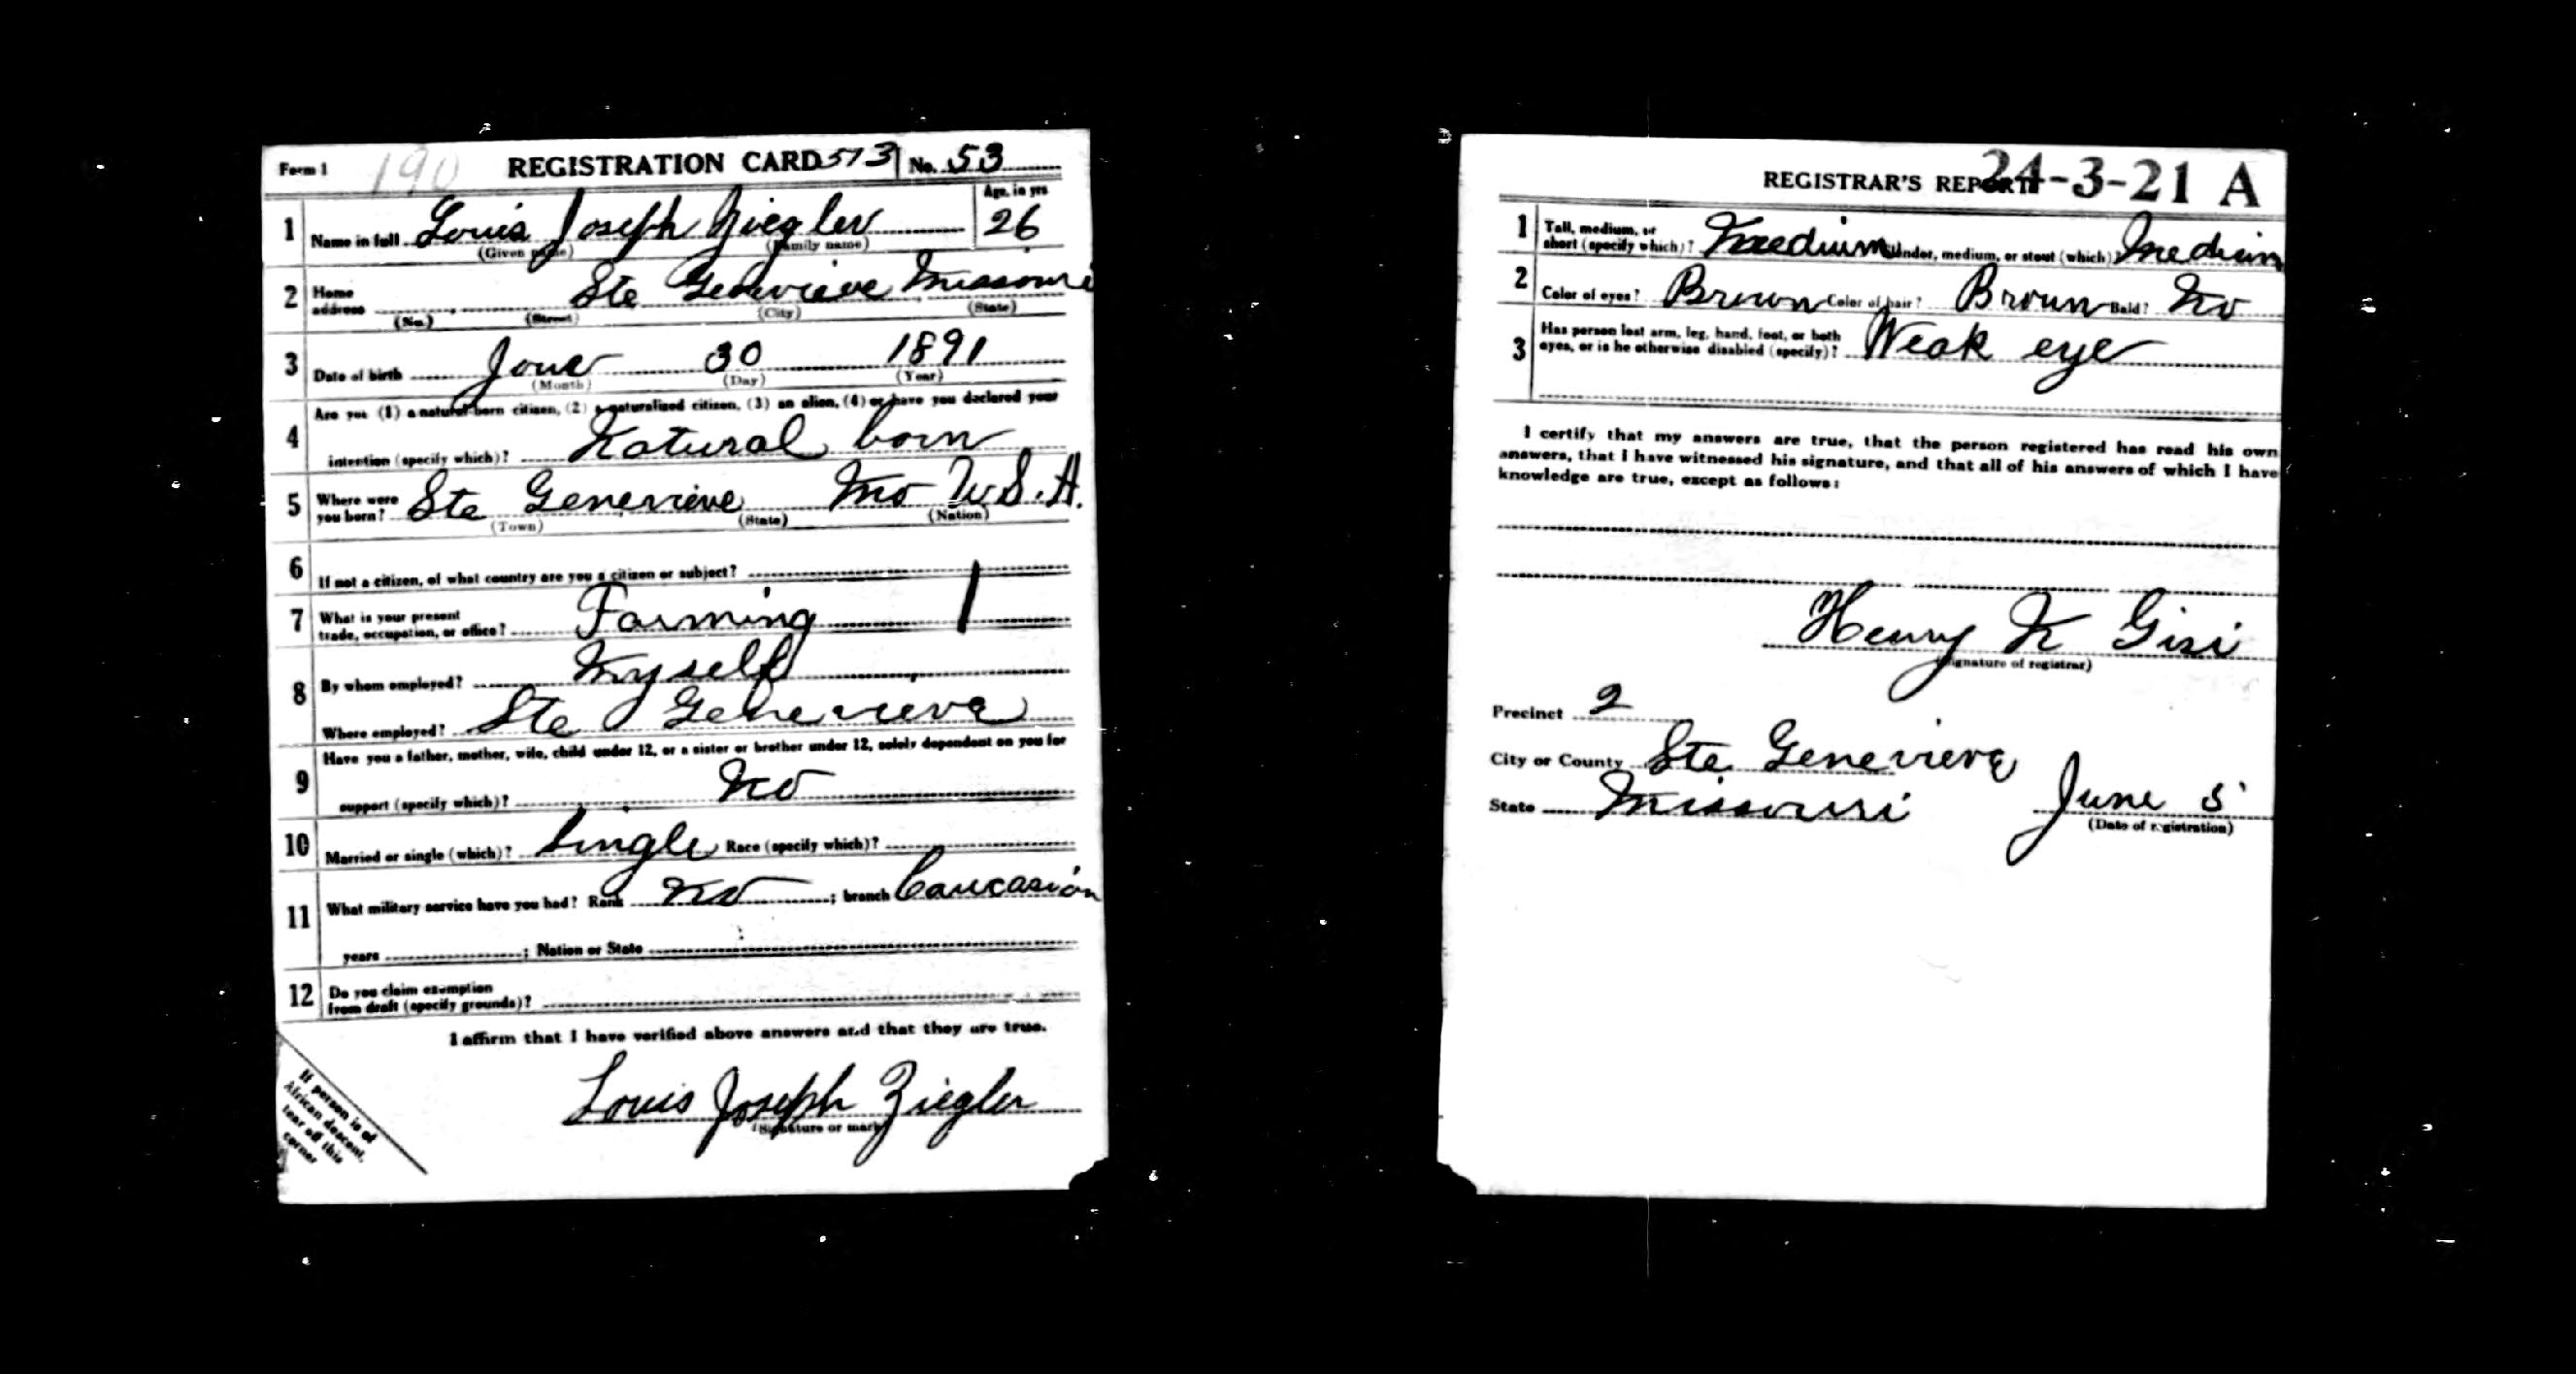 Form 1 190 REGISTRATION CARD 573 No. 53
1 Name in full Louis Joseph Ziegler Age, in yrs 26
(Given name) (Family name)
2 Home address Ste Genevieve Missouri
(No.) (Street) (City) (State)
3 Date of birth June 30 1891
(Month) (Day) (Year)
Are you (1) a natural-born citizen, (2) a naturalized citizen, (3) an alien, (4) or have you declared your
4 intention (specify which)? Natural born
5 Where were you born? Ste Genevieve Mo U.S.A.
(Town) (State) (Nation)
6 If not a citizen, of what country are you a citizen or subject?
7 What is your present trade, occupation, or office? Farming 1
8 By whom employed? Myself
Where employed? Ste Genevieve
Have you a father, mother, wife, child under 12, or a sister or brother under 12, solely dependent on you for
9 support (specify which)? No
10 Married or single (which)? Single Race (specify which)?
11 What military service have you had? Rank No ; branch Caucasian
years ; Nation or State
12 Do you claim exemption from draft (specify grounds)?
I affirm that I have verified above answers and that they are true.
Louis Joseph Ziegler
(Signature or mark)
If person is of
African descent,
tear off this
corner
REGISTRAR'S REPORT 24-3-21 A
1 Tall, medium, or short (specify which)? Medium Slender, medium, or stout (which)? Medium
2 Color of eyes? Brown Color of hair? Brown Bald? No
3 Has person lost arm, leg, hand, foot, or both eyes, or is he otherwise disabled (specify)? Weak eye
I certify that my answers are true, that the person registered has read his own
answers, that I have witnessed his signature, and that all of his answers of which I have
knowledge are true, except as follows:
Henry K Gisi
(Signature of registrar)
Precinct 2
City or County Ste Genevieve
State Missouri June 5
(Date of registration)